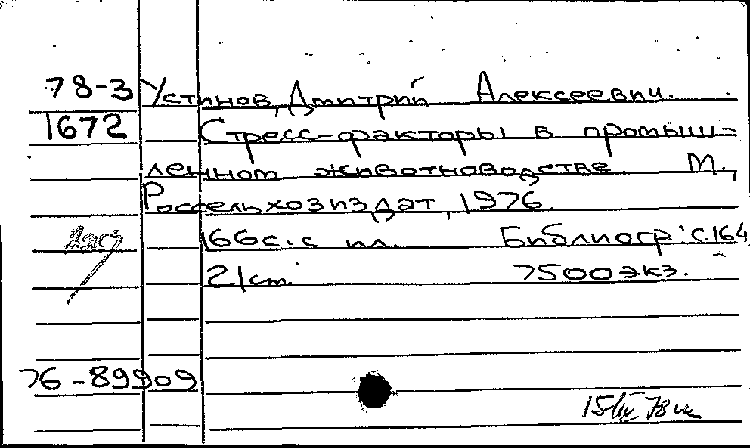 78-3 Устинов, Дмитрий Алексеевич.
1672 Стресс-факторы в промыш-
ленном животноводстве. М.,
Россельхозиздат, 1976.
166с. с ил. Библиогр: с.164
2/ст. 7500экз.
76-89909